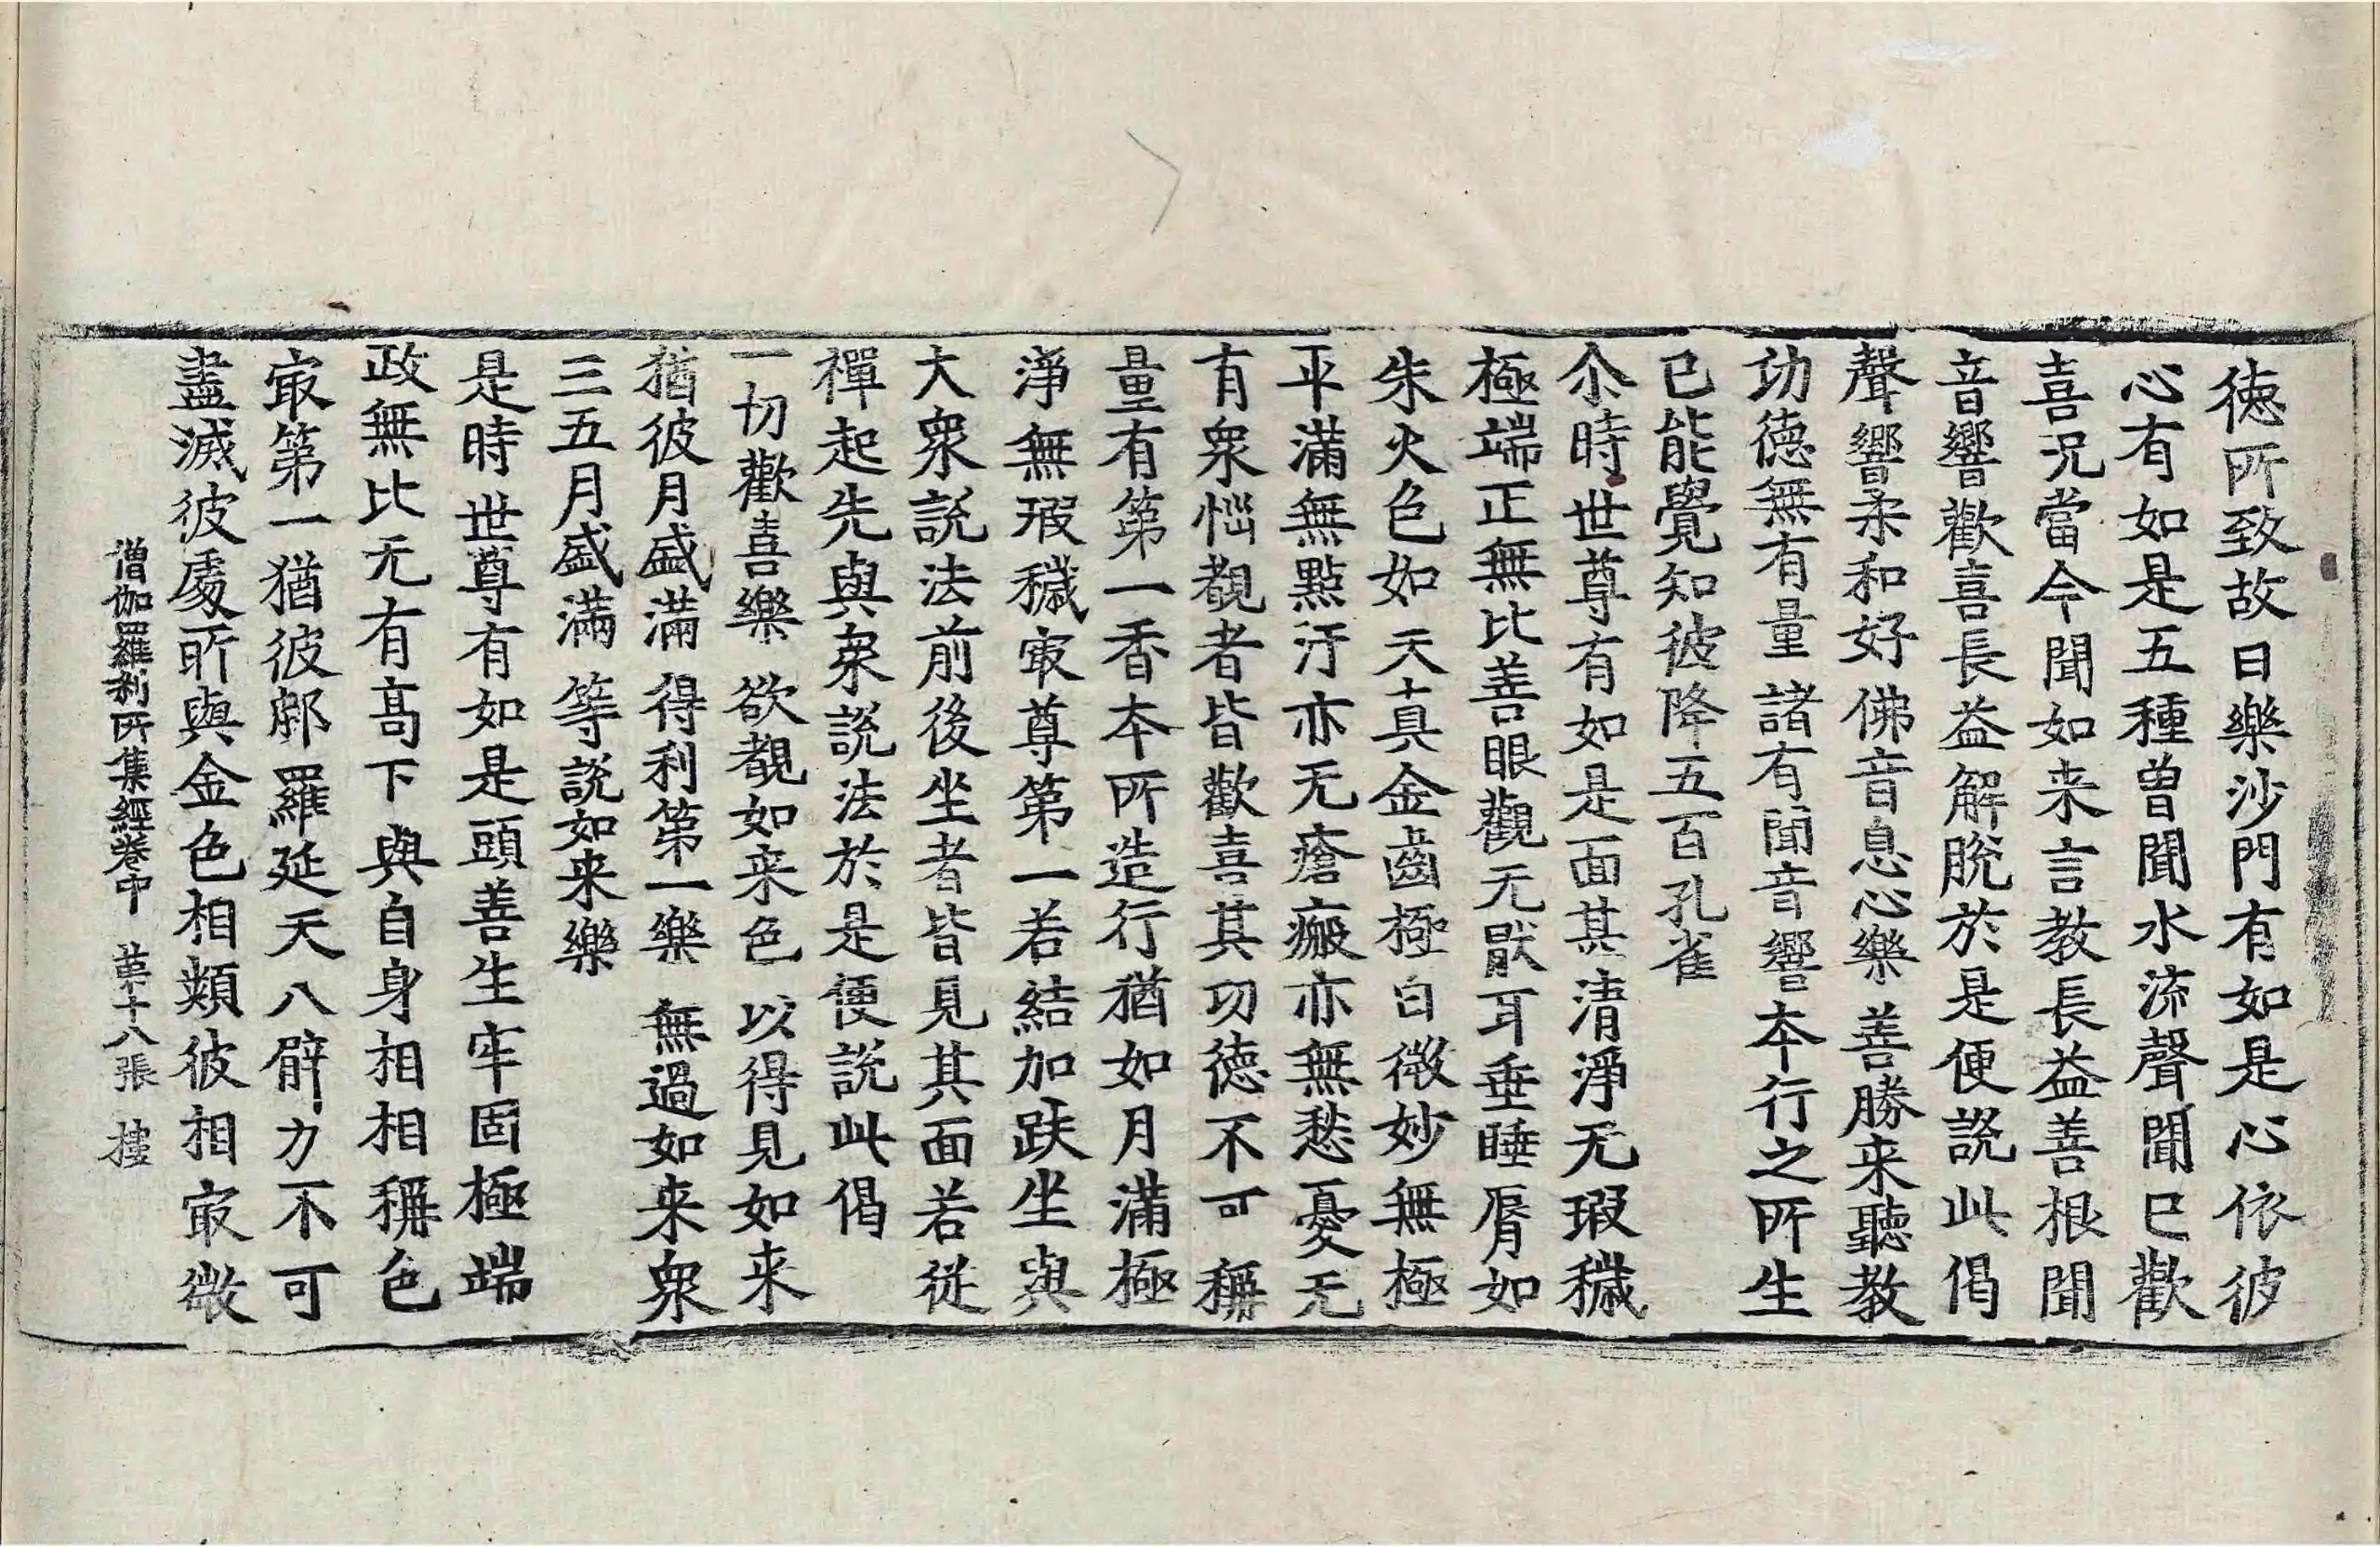 徳所致故曰樂沙門有如是心依彼
心有如是五種曽聞水流聲聞已歡
喜況當今聞如来言教長益善根聞
音響歡喜長益解脫於是便說此偈
聲響柔和好 佛音息心樂 善勝来聽教
功德無有量 諸有聞音響 本行之所生
已能覺知彼 降五百孔雀
尒時世尊有如是面其清淨无瑕穢
極端正無比善眼觀无猒耳垂睡脣如
朱火色如天真金齒極白微妙無極
平滿無點汙亦无瘡瘢亦無愁憂无
有衆惱覩者皆歡喜其功德不可稱
量有第一香本所造行猶如月滿極
淨無瑕穢㝡尊第一若結加趺坐與
大衆說法前後坐者皆見其面若従
禪起先與衆說法於是便說此偈
一切歡喜樂 欲覩如来色 以得見如来
猶彼月盛滿 得利第一樂 無過如来衆
三五月盛滿 等說如来樂
是時世尊有如是頭善生牢固極端
政無比无有髙下與自身相相稱色
㝡第一猶彼郍羅延天八臂力不可
盡滅彼處所與金色相類彼相㝡微
僧伽羅刹所集經卷中 苐十八張 樓